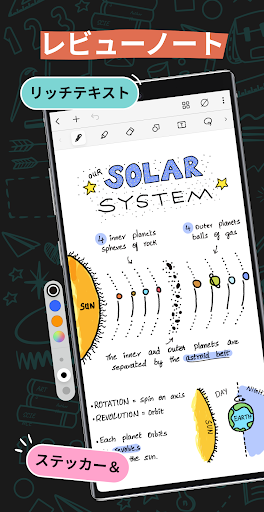 レビューノート
リッチテキスト
OUR
SOLAR
SYSTEM
4 Inner planets
spheres of rock
4 Outer planets
balls of gas
SUN
The inner and outer planets are
separated by the astroid belt
• ROTATION = spin on axis
• REVOLUTION = orbit
• Each planet orbits
the sun.
DAY
NIGH
SUN
EARTH
ステッカー＆